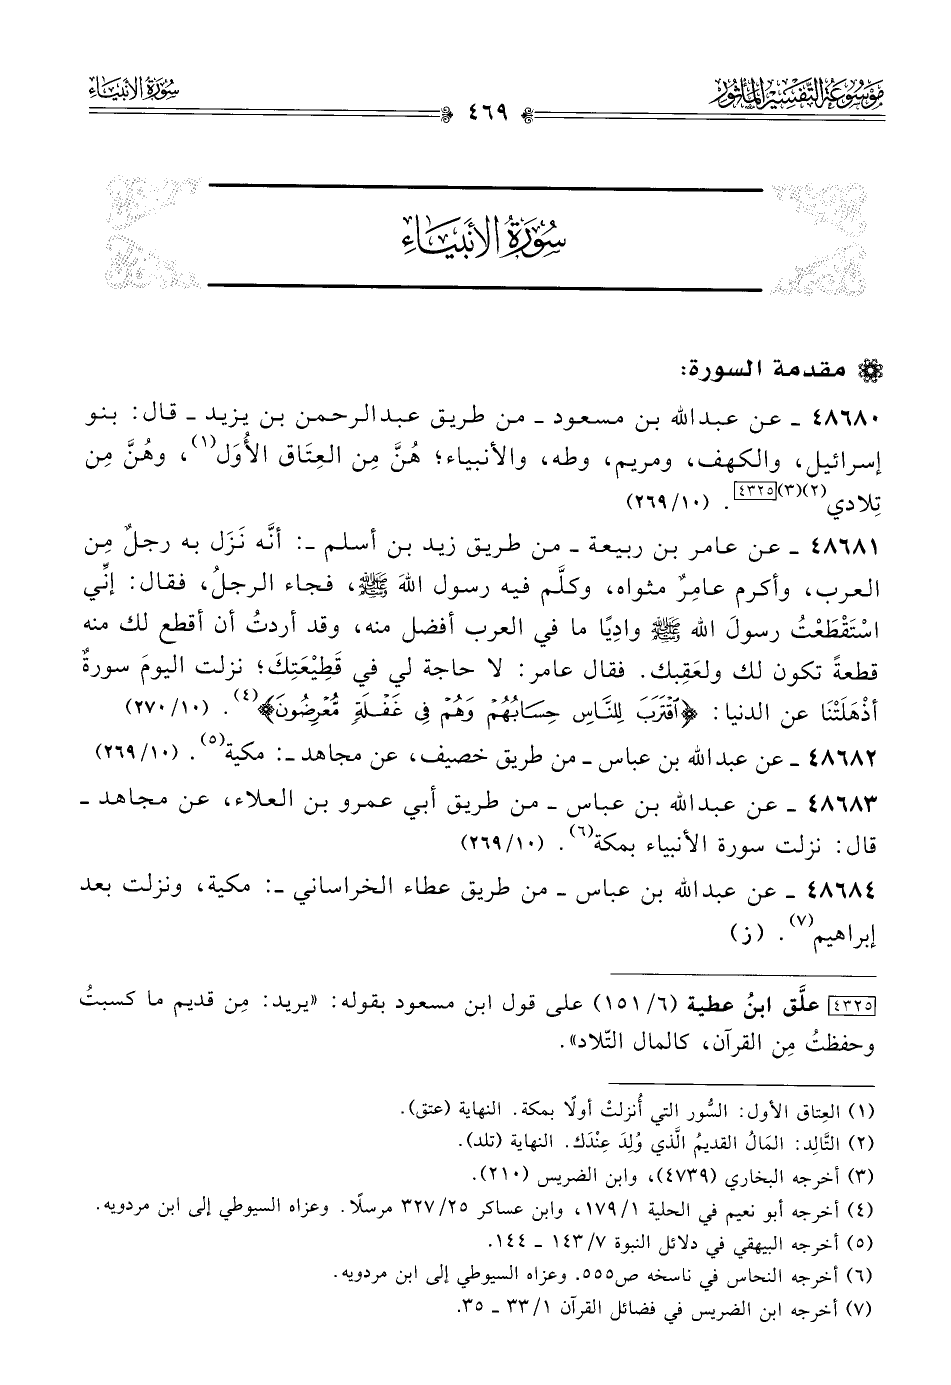 موسوعة التفسير المأثور
٤٦٩
سورة الأنبياء
سُورَةُ الأَنبيَاءِ
مقدمة السورة:
٤٨٦٨٠ ـ عن عبدالله بن مسعود ـ من طريق عبدالرحمن بن يزيد ـ قال: بنو
إسرائيل، والكهف، ومريم، وطه، والأنبياء؛ هُنَّ مِن العِتَاق الأُوَل(١)، وهُنَّ مِن
تِلادي(٢)(٣)[٤٣٢٥]. (١٠/٢٦٩)
٤٨٦٨١ ـ عن عامر بن ربيعة ـ من طريق زيد بن أسلم ـ: أنَّه نَزَل به رجلٌ مِن
العرب، وأكرم عامِرٌ مثواه، وكلَّم فيه رسول اللهَ ﷺ، فجاء الرجلُ، فقال: إنِّي
اسْتَقْطَعْتُ رسولَ الله ﷺ وادِيًا ما في العرب أفضل منه، وقد أردتُ أن أقطع لك منه
قطعةً تكون لك ولعَقِبك. فقال عامر: لا حاجة لي في قَطِيْعَتِكَ؛ نزلت اليومَ سورةٌ
أذْهَلَتْنَا عن الدنيا: ﴿ٱقۡتَرَبَ لِلنَّاسِ حِسَابُهُمۡ وَهُمۡ فِي غَفۡلَةٖ مُّعۡرِضُونَ﴾(٤). (١٠/٢٧٠)
٤٨٦٨٢ ـ عن عبدالله بن عباس ـ من طريق خصيف، عن مجاهد ـ: مكية(٥). (١٠/٢٦٩)
٤٨٦٨٣ ـ عن عبدالله بن عباس ـ من طريق أبي عمرو بن العلاء، عن مجاهد ـ
قال: نزلت سورة الأنبياء بمكة(٦). (١٠/٢٦٩)
٤٨٦٨٤ ـ عن عبدالله بن عباس ـ من طريق عطاء الخراساني ـ: مكية، ونزلت بعد
إبراهيم(٧). (ز)
[٤٣٢٥] علَّق ابنُ عطية (٦/١٥١) على قول ابن مسعود بقوله: «يريد: مِن قديم ما كسبتُ
وحفظتُ مِن القرآن، كالمال التّلاد».
(١) العِتاق الأول: السُّور التي أُنزلتْ أولًا بمكة. النهاية (عتق).
(٢) التَّالِد: المَالُ القديمُ الَّذي وُلِدَ عِنْدَك. النهاية (تلد).
(٣) أخرجه البخاري (٤٧٣٩)، وابن الضريس (٢١٠).
(٤) أخرجه أبو نعيم في الحلية ١/١٧٩، وابن عساكر ٢٥/٣٢٧ مرسلًا. وعزاه السيوطي إلى ابن مردويه.
(٥) أخرجه البيهقي في دلائل النبوة ٧/١٤٣ ـ ١٤٤.
(٦) أخرجه النحاس في ناسخه ص٥٥٥. وعزاه السيوطي إلى ابن مردويه.
(٧) أخرجه ابن الضريس في فضائل القرآن ١/٣٣ ـ ٣٥.